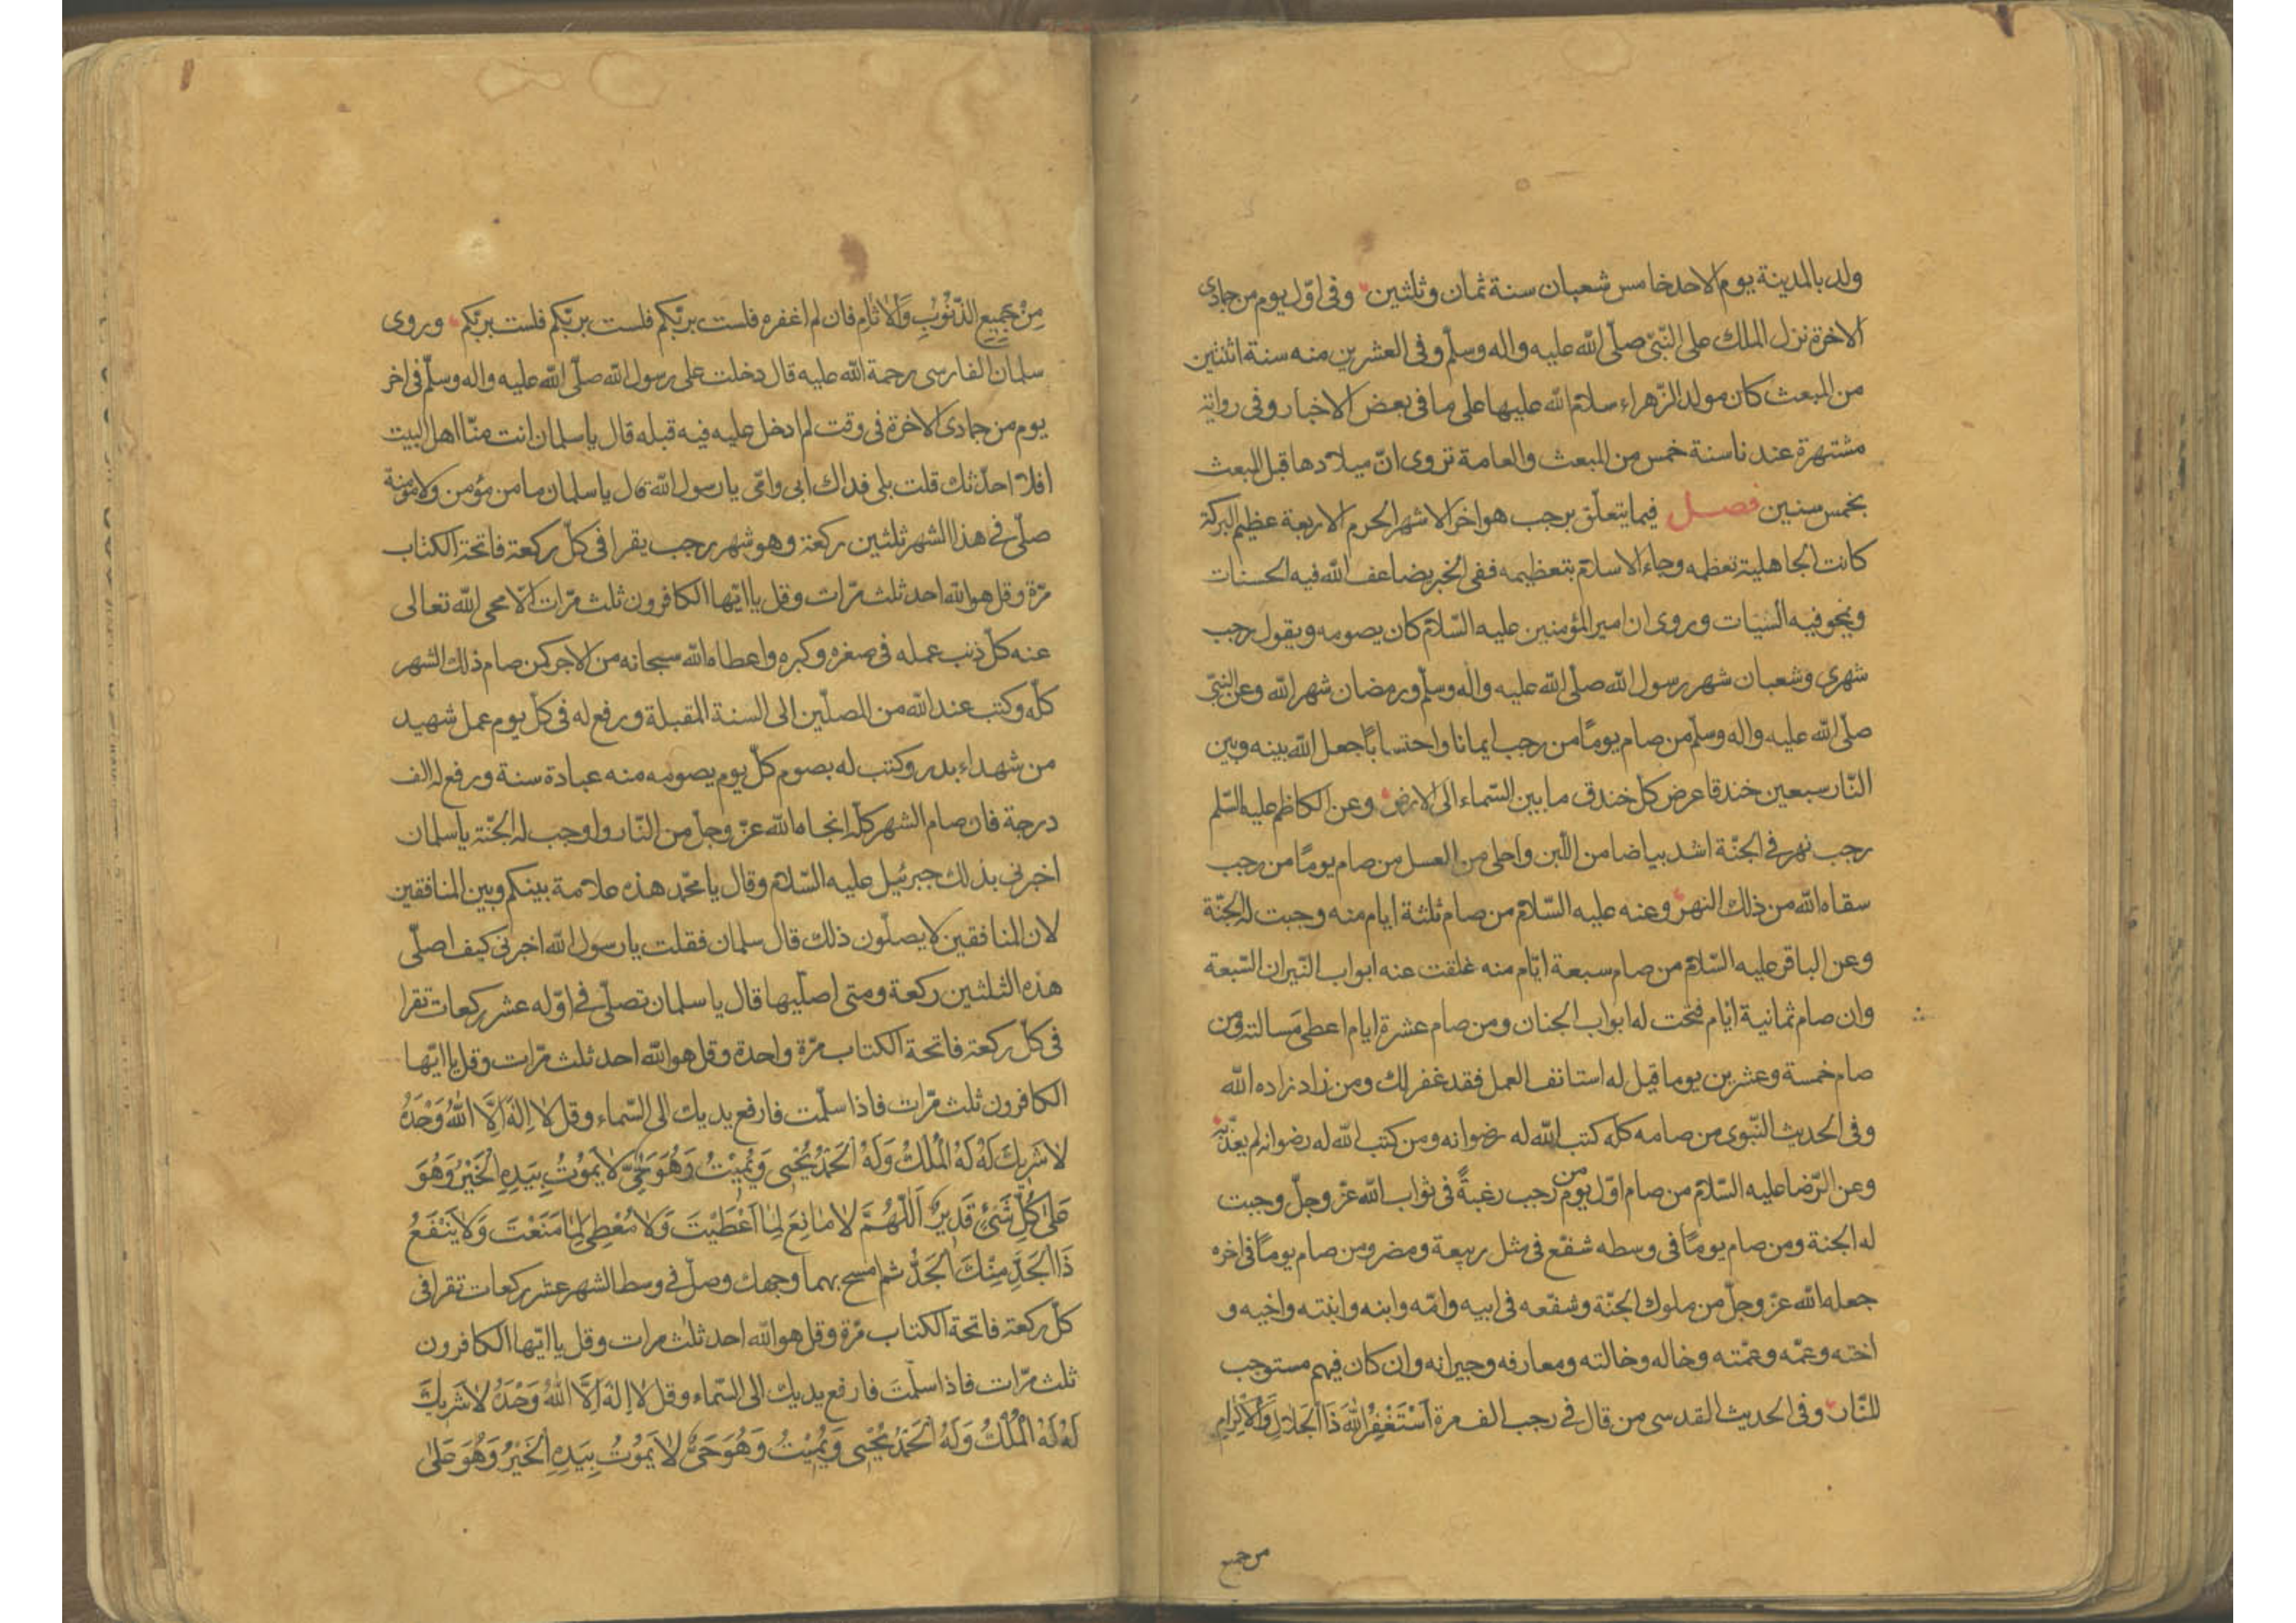 ولد بالمدينة يوم الاحد خامس شعبان سنة ثمان وثلثين وفى اوّل يوم من جمادى
الاخرة نزل الملك على النّبىّ صلّى الله عليه واله وسلّم وفى العشرين منه سنة اثنتين
من المبعث كان مولد الزّهراء سلام الله عليها على ما فى بعض الاخبار وفى رواية
مشتهرة عندنا سنة خمس من المبعث والعامة تروى انّ ميلادها قبل المبعث
بخمس سنين فصل فيما يتعلّق برجب هو اخر الاشهر الحرم الاربعة عظيم البركة
كانت الجاهلية تعظمه وجاء الاسلام بتعظيمه ففى الخبر يضاعف الله فيه الحسنات
ويمحو فيه السيات وروى ان امير المؤمنين عليه السّلام كان يصومه ويقول رجب
شهرى وشعبان شهر رسول الله صلّى الله عليه واله وسلّم ورمضان شهر الله وعن النبىّ
صلّى الله عليه واله وسلّم من صام يومًا من رجب ايمانا واحتسابًا جعل الله بينه وبين
النّار سبعين خندقا عرض كلّ خندق ما بين السّماء الى الارض وعن الكاظم عليه السّلم
رجب نهر فى الجنّة اشد بياضا من اللّبن واحلى من العسل من صام يومًا من رجب
سقاه الله من ذلك النهر وعنه عليه السّلام من صام ثلثة ايام منه وجبت له الجنّة
وعن الباقر عليه السّلام من صام سبعة ايّام منه غلقت عنه ابواب النّيران السّبعة
وان صام ثمانية ايّام فتحت له ابواب الجنان ومن صام عشرة ايام اعطى مسالته ومن
صام خمسة وعشرين يوما قيل له استانف العمل فقد غفر لك ومن زاد زاده الله
وفى الحديث النّبوى من صامه كلّه كتب الله له رضوانه ومن كتب الله له رضوانه لم يعذّبه
وعن الرّضا عليه السّلام من صام اوّل يوم من رجب رغبةً فى ثواب الله عزّ وجلّ وجبت
له الجنة ومن صام يومًا فى وسطه شفّع فى مثل ربيعة ومضر ومن صام يومًا فى اخره
جعله الله عزّ وجلّ من ملوك الجنّة وشفّعه فى ابيه وامّه وابنه وابنته واخيه و
اخته وعمّه وعمّته وخاله وخالته ومعارفه وجيرانه وان كان فيهم مستوجب
للنّار وفى الحديث القدسى من قال فى رجب الف مرة اَسْتَغْفِرُ اللهَ ذَا الْجَلالِ وَالْاِكْرامِ
من جميع
مِنْ جَمِيعِ الذُّنُوْبِ وَالْاٰثامِ فان لم اغفره فلست بربّكم فلست بربّكم فلست بربّكم وروى
سلمان الفارسى رحمة الله عليه قال دخلت على رسول الله صلّى الله عليه واله وسلّم فى اخر
يوم من جمادى الاخرة فى وقت لم ادخل عليه فيه قبله قال يا سلمان انت منّا اهل البيت
افلا احدّثك قلت بلى فداك ابى وامّى يا رسول الله قال يا سلمان ما من مؤمن ولا مؤمنة
صلّى فى هذا الشهر ثلثين ركعة وهو شهر رجب يقرا فى كلّ ركعة فاتحة الكتاب
مرّة وقل هو الله احد ثلث مرّات وقل يا ايّها الكافرون ثلث مرّات الّا محى الله تعالى
عنه كلّ ذنب عمله فى صغره وكبره واعطاه الله سبحانه من الاجر كمن صام ذلك الشهر
كلّه وكتب عند الله من المصلّين الى السنة المقبلة ورفع له فى كلّ يوم عمل شهيد
من شهداء بدر وكتب له بصوم كلّ يوم يصومه منه عبادة سنة ورفع له الف
درجة فان صام الشهر كلّه انجاه الله عزّ وجلّ من النّار واوجب له الجنّة يا سلمان
اخبرنى بذلك جبرئيل عليه السّلام وقال يا محمّد هذه علامة بينكم وبين المنافقين
لان المنافقين لا يصلّون ذلك قال سلمان فقلت يا رسول الله اخبرنى كيف اصلّى
هذه الثلثين ركعة ومتى اصلّيها قال يا سلمان تصلّى فى اوّله عشر ركعات تقرا
فى كلّ ركعة فاتحة الكتاب مرّة واحدة وقل هو الله احد ثلث مرّات وقل يا ايّها
الكافرون ثلث مرّات فاذا سلّمت فارفع يديك الى السّماء وقل لا اِلٰهَ اِلَّا اللهُ وَحْدَهُ
لا شَرِيْكَ لَهُ لَهُ الْمُلْكُ وَلَهُ الْحَمْدُ يُحْيِى وَيُمِيْتُ وَهُوَ حَىٌّ لا يَمُوْتُ بِيَدِهِ الْخَيْرُ وَهُوَ
عَلىٰ كُلِّ شَىْءٍ قَدِيرٌ اَللّٰهُمَّ لا مانِعَ لِما اَعْطَيْتَ وَلا مُعْطِىَ لِما مَنَعْتَ وَلا يَنْفَعُ
ذَا الْجَدِّ مِنْكَ الْجَدُّ ثم امسح بهما وجهك وصلّ فى وسط الشهر عشر ركعات تقرا فى
كلّ ركعة فاتحة الكتاب مرّة وقل هو الله احد ثلث مرات وقل يا ايّها الكافرون
ثلث مرّات فاذا سلّمت فارفع يديك الى السّماء وقل لا اِلٰهَ اِلَّا اللهُ وَحْدَهُ لا شَرِيْكَ
لَهُ لَهُ الْمُلْكُ وَلَهُ الْحَمْدُ يُحْيِى وَيُمِيْتُ وَهُوَ حَىٌّ لا يَمُوْتُ بِيَدِهِ الْخَيْرُ وَهُوَ عَلىٰ